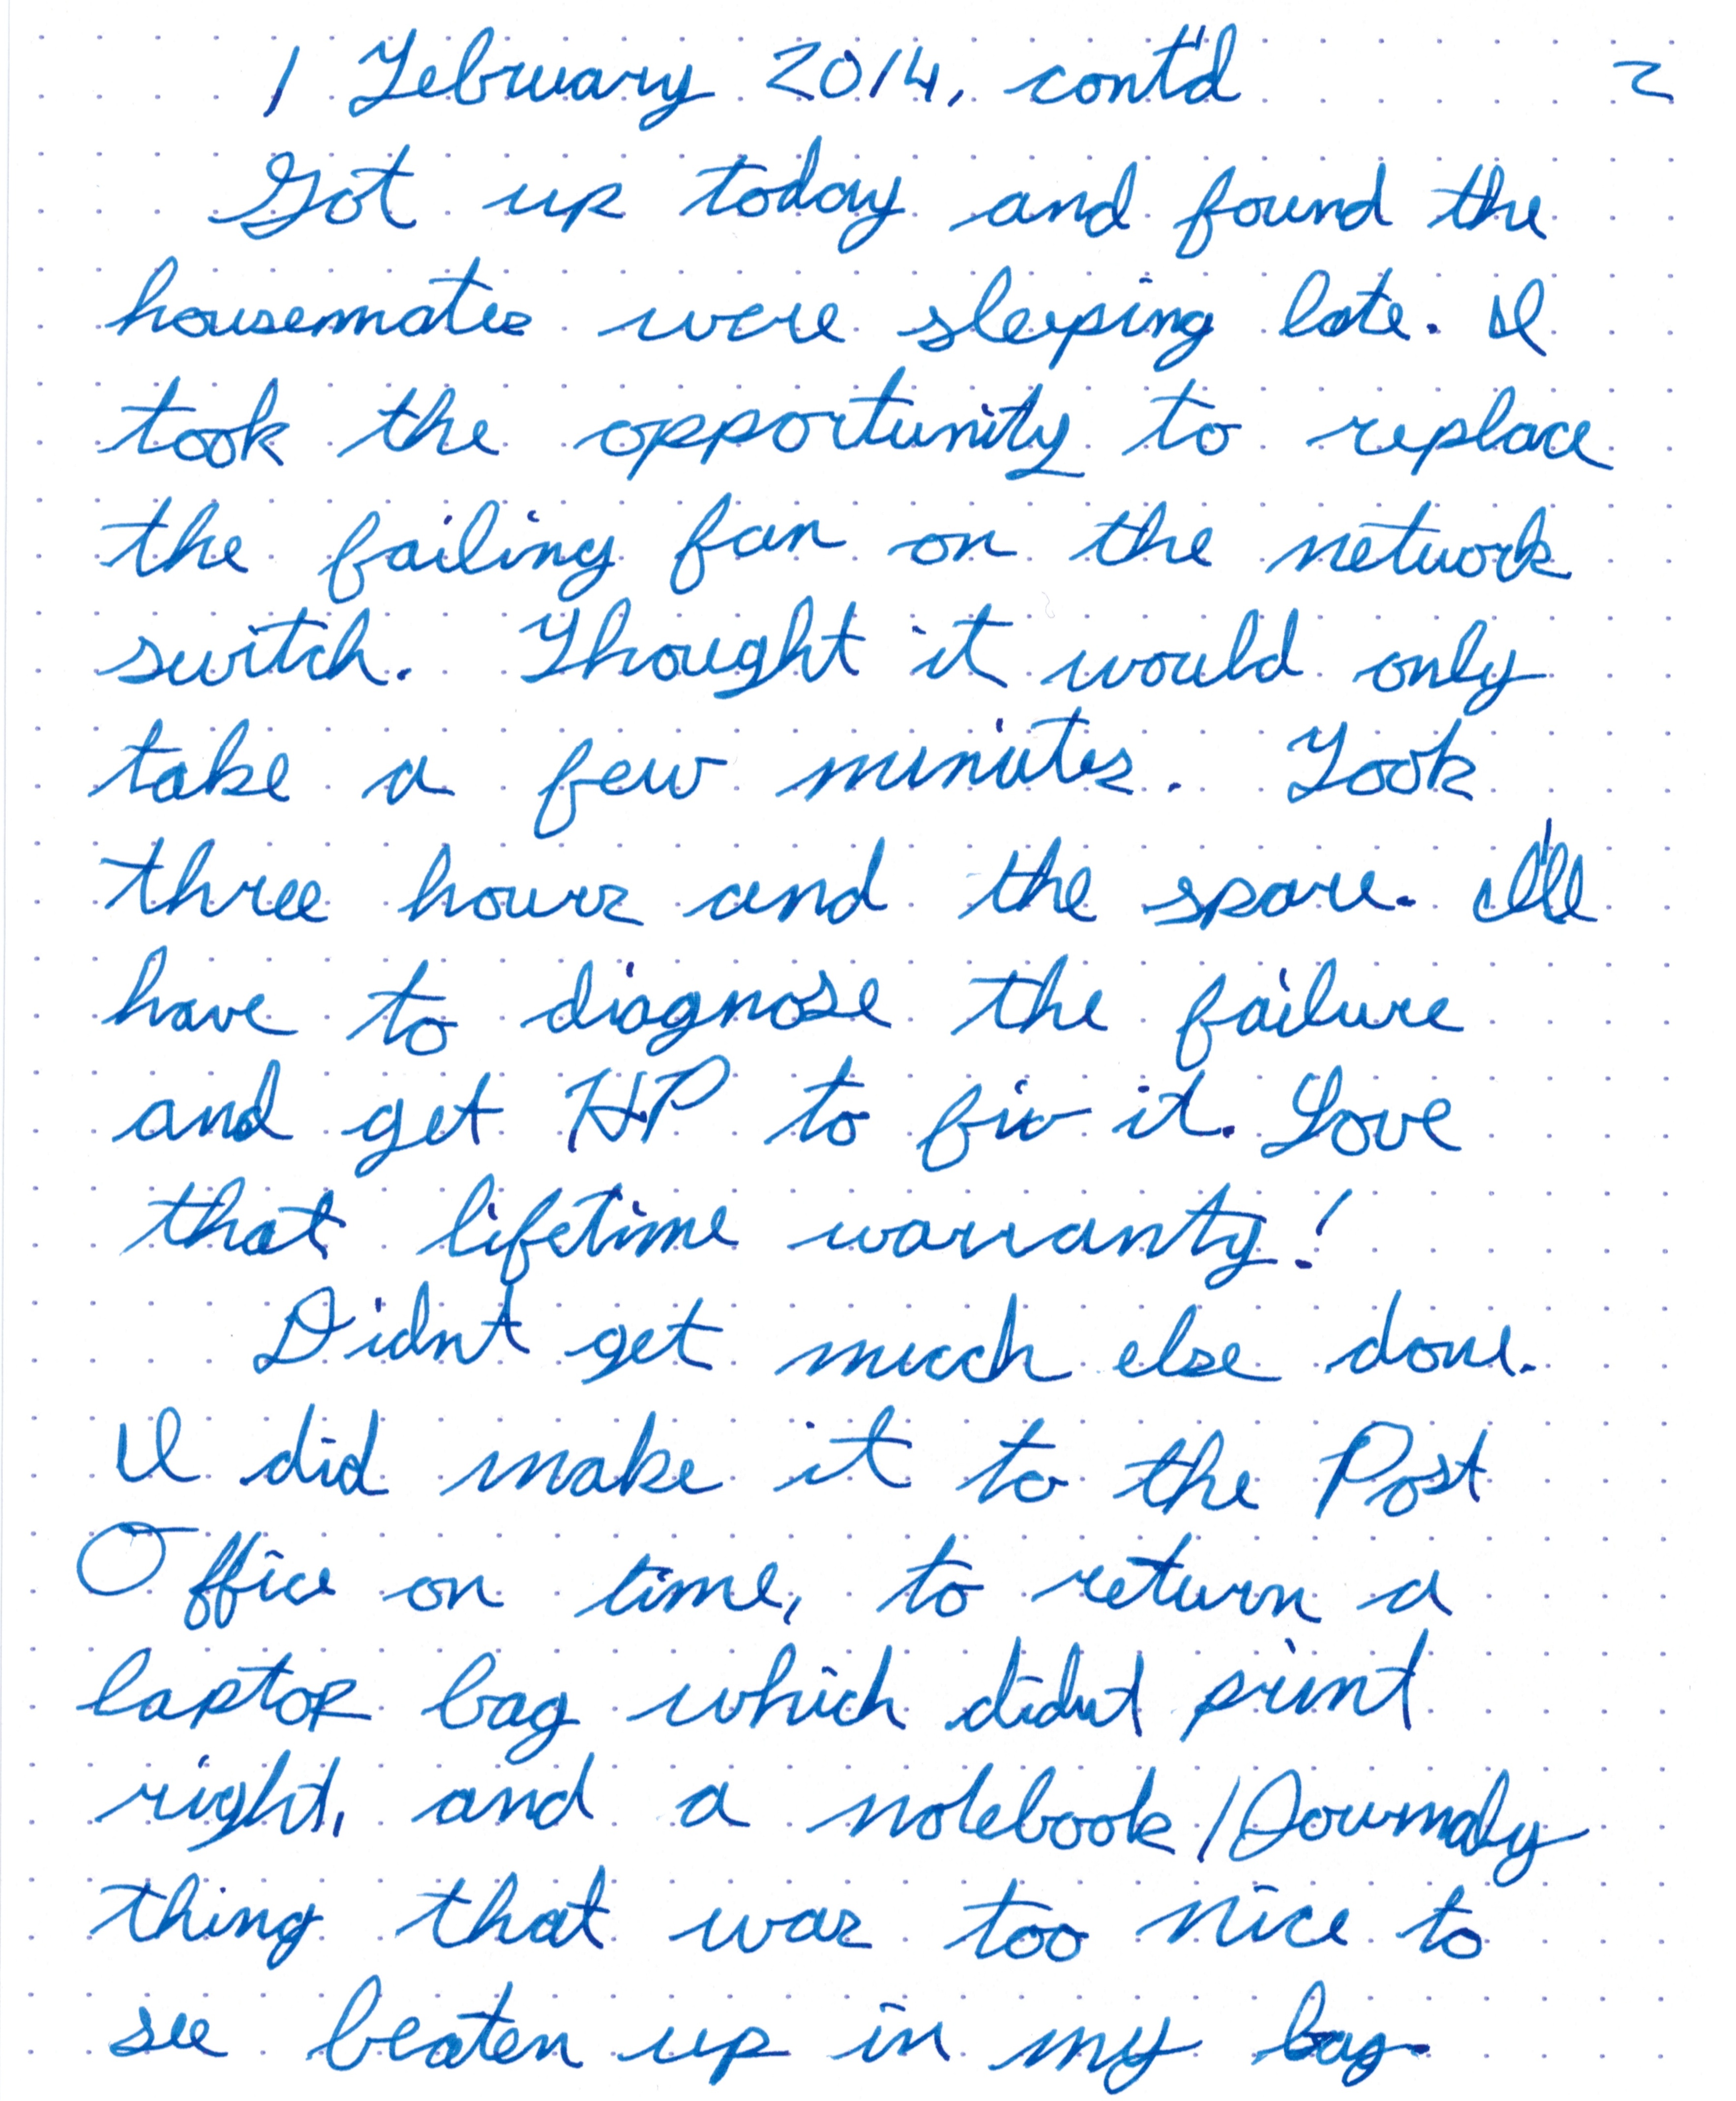 1 February 2014, cont'd 2
Got up today and found the
housemates were sleeping late. I
took the opportunity to replace
the failing fan on the network
switch. Thought it would only
take a few minutes. Took
three hours and the spare. I'll
have to diagnose the failure
and get HP to fix it. Love
that lifetime warranty!
Didn't get much else done.
I did make it to the Post
Office on time, to return a
laptop bag which didn't print
right, and a notebook/Journaly
thing that was too nice to
see beaten up in my bag.